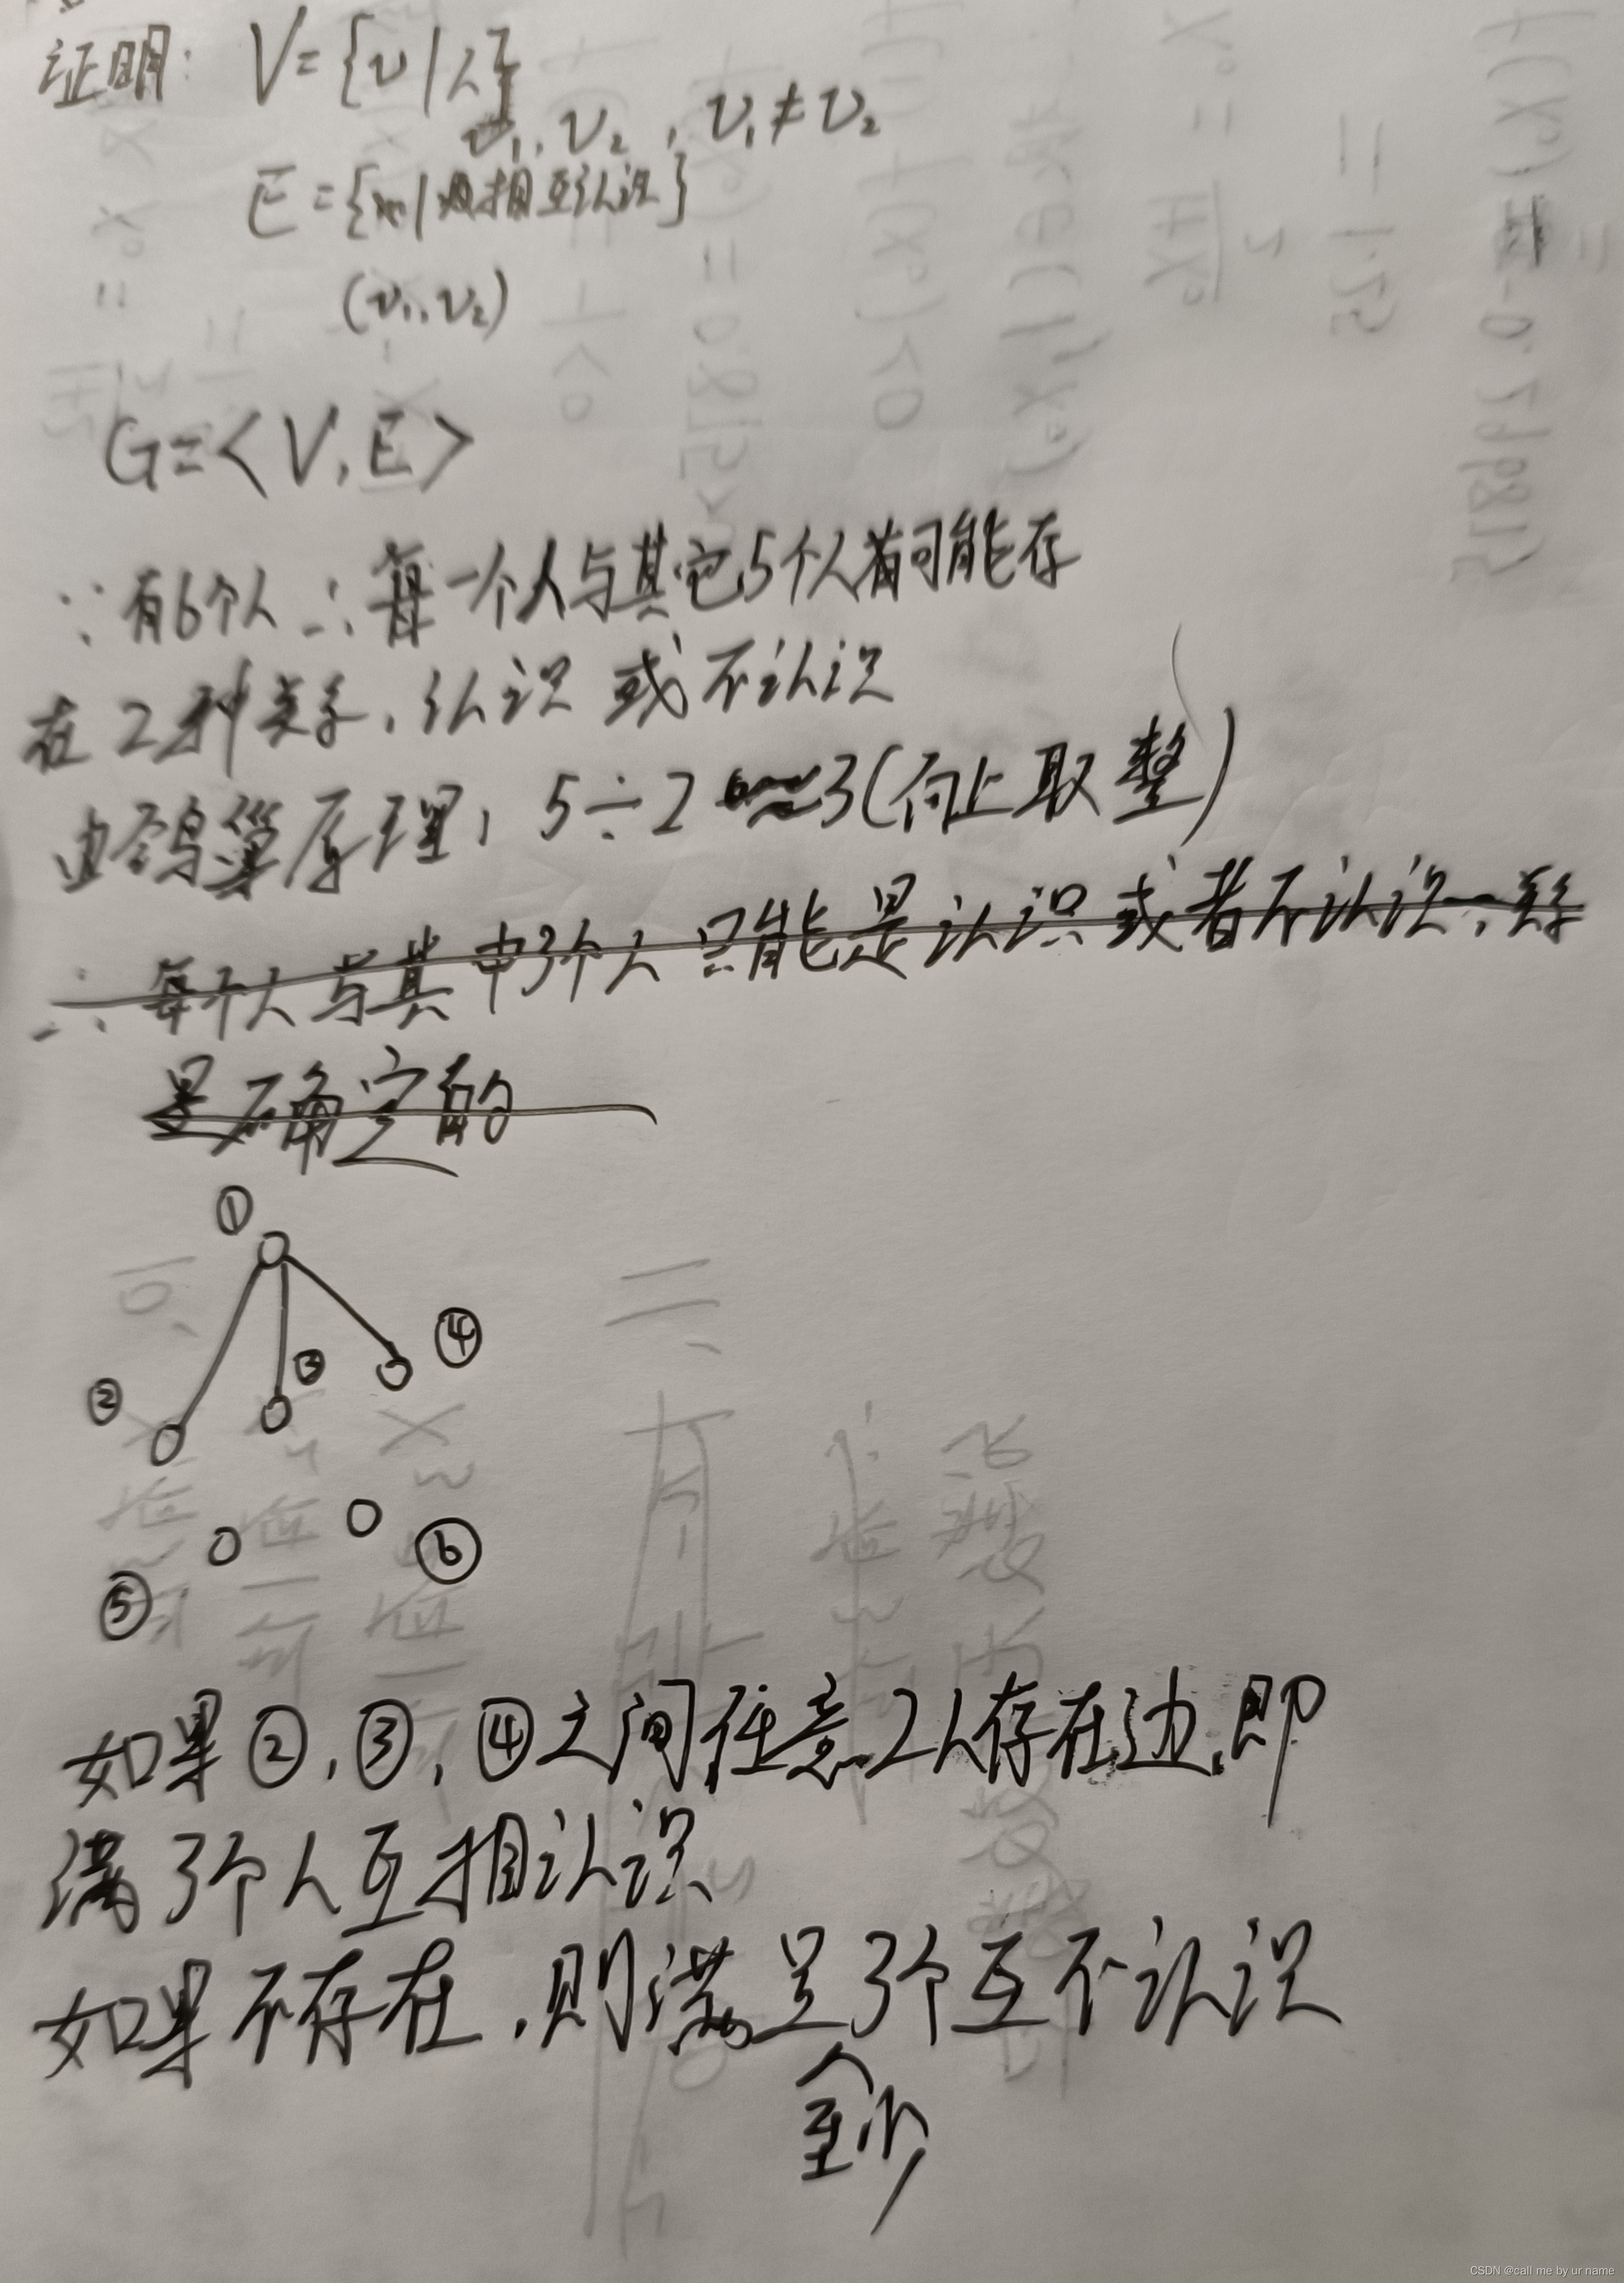 证明: V={v|人}
v₁,v₂,v₁≠v₂
E={ | 相互认识}
(v₁,v₂)
G=<V,E>
∵有6个人∴每一个人与其它5个人有可能存
在2种关系,认识或不认识
由鸽巢原理,5÷2≈3(向上取整)
∴每个人与其中3个人只能是认识或者不认识,关系
是确定的
①
④
③
②
⑥
⑤
如果②,③,④之间任意2人存在边,即
满3个人互相认识
如果不存在,则满足3个互不认识
至少
CSDN @call me by ur name